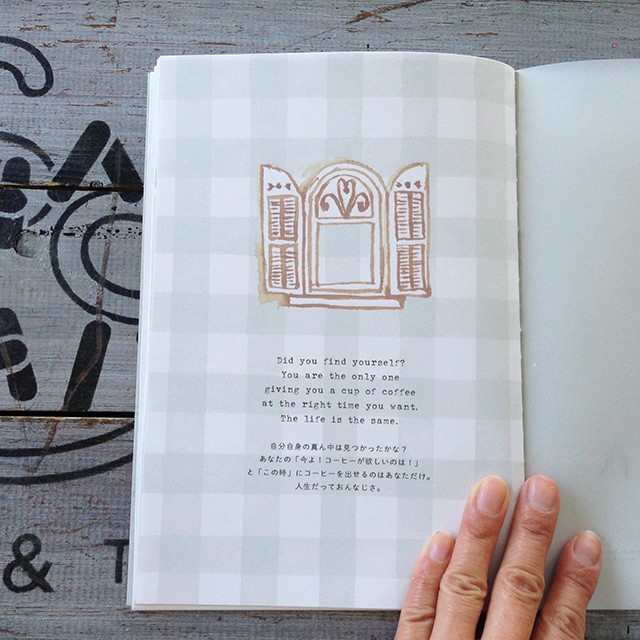 Did you find yourself?
You are the only one
giving you a cup of coffee
at the right time you want.
The life is the same.
自分自身の真ん中は見つかったかな？
あなたの「今よ！コーヒーが欲しいのは！」
と「この時」にコーヒーを出せるのはあなただけ。
人生だっておんなじさ。
& T